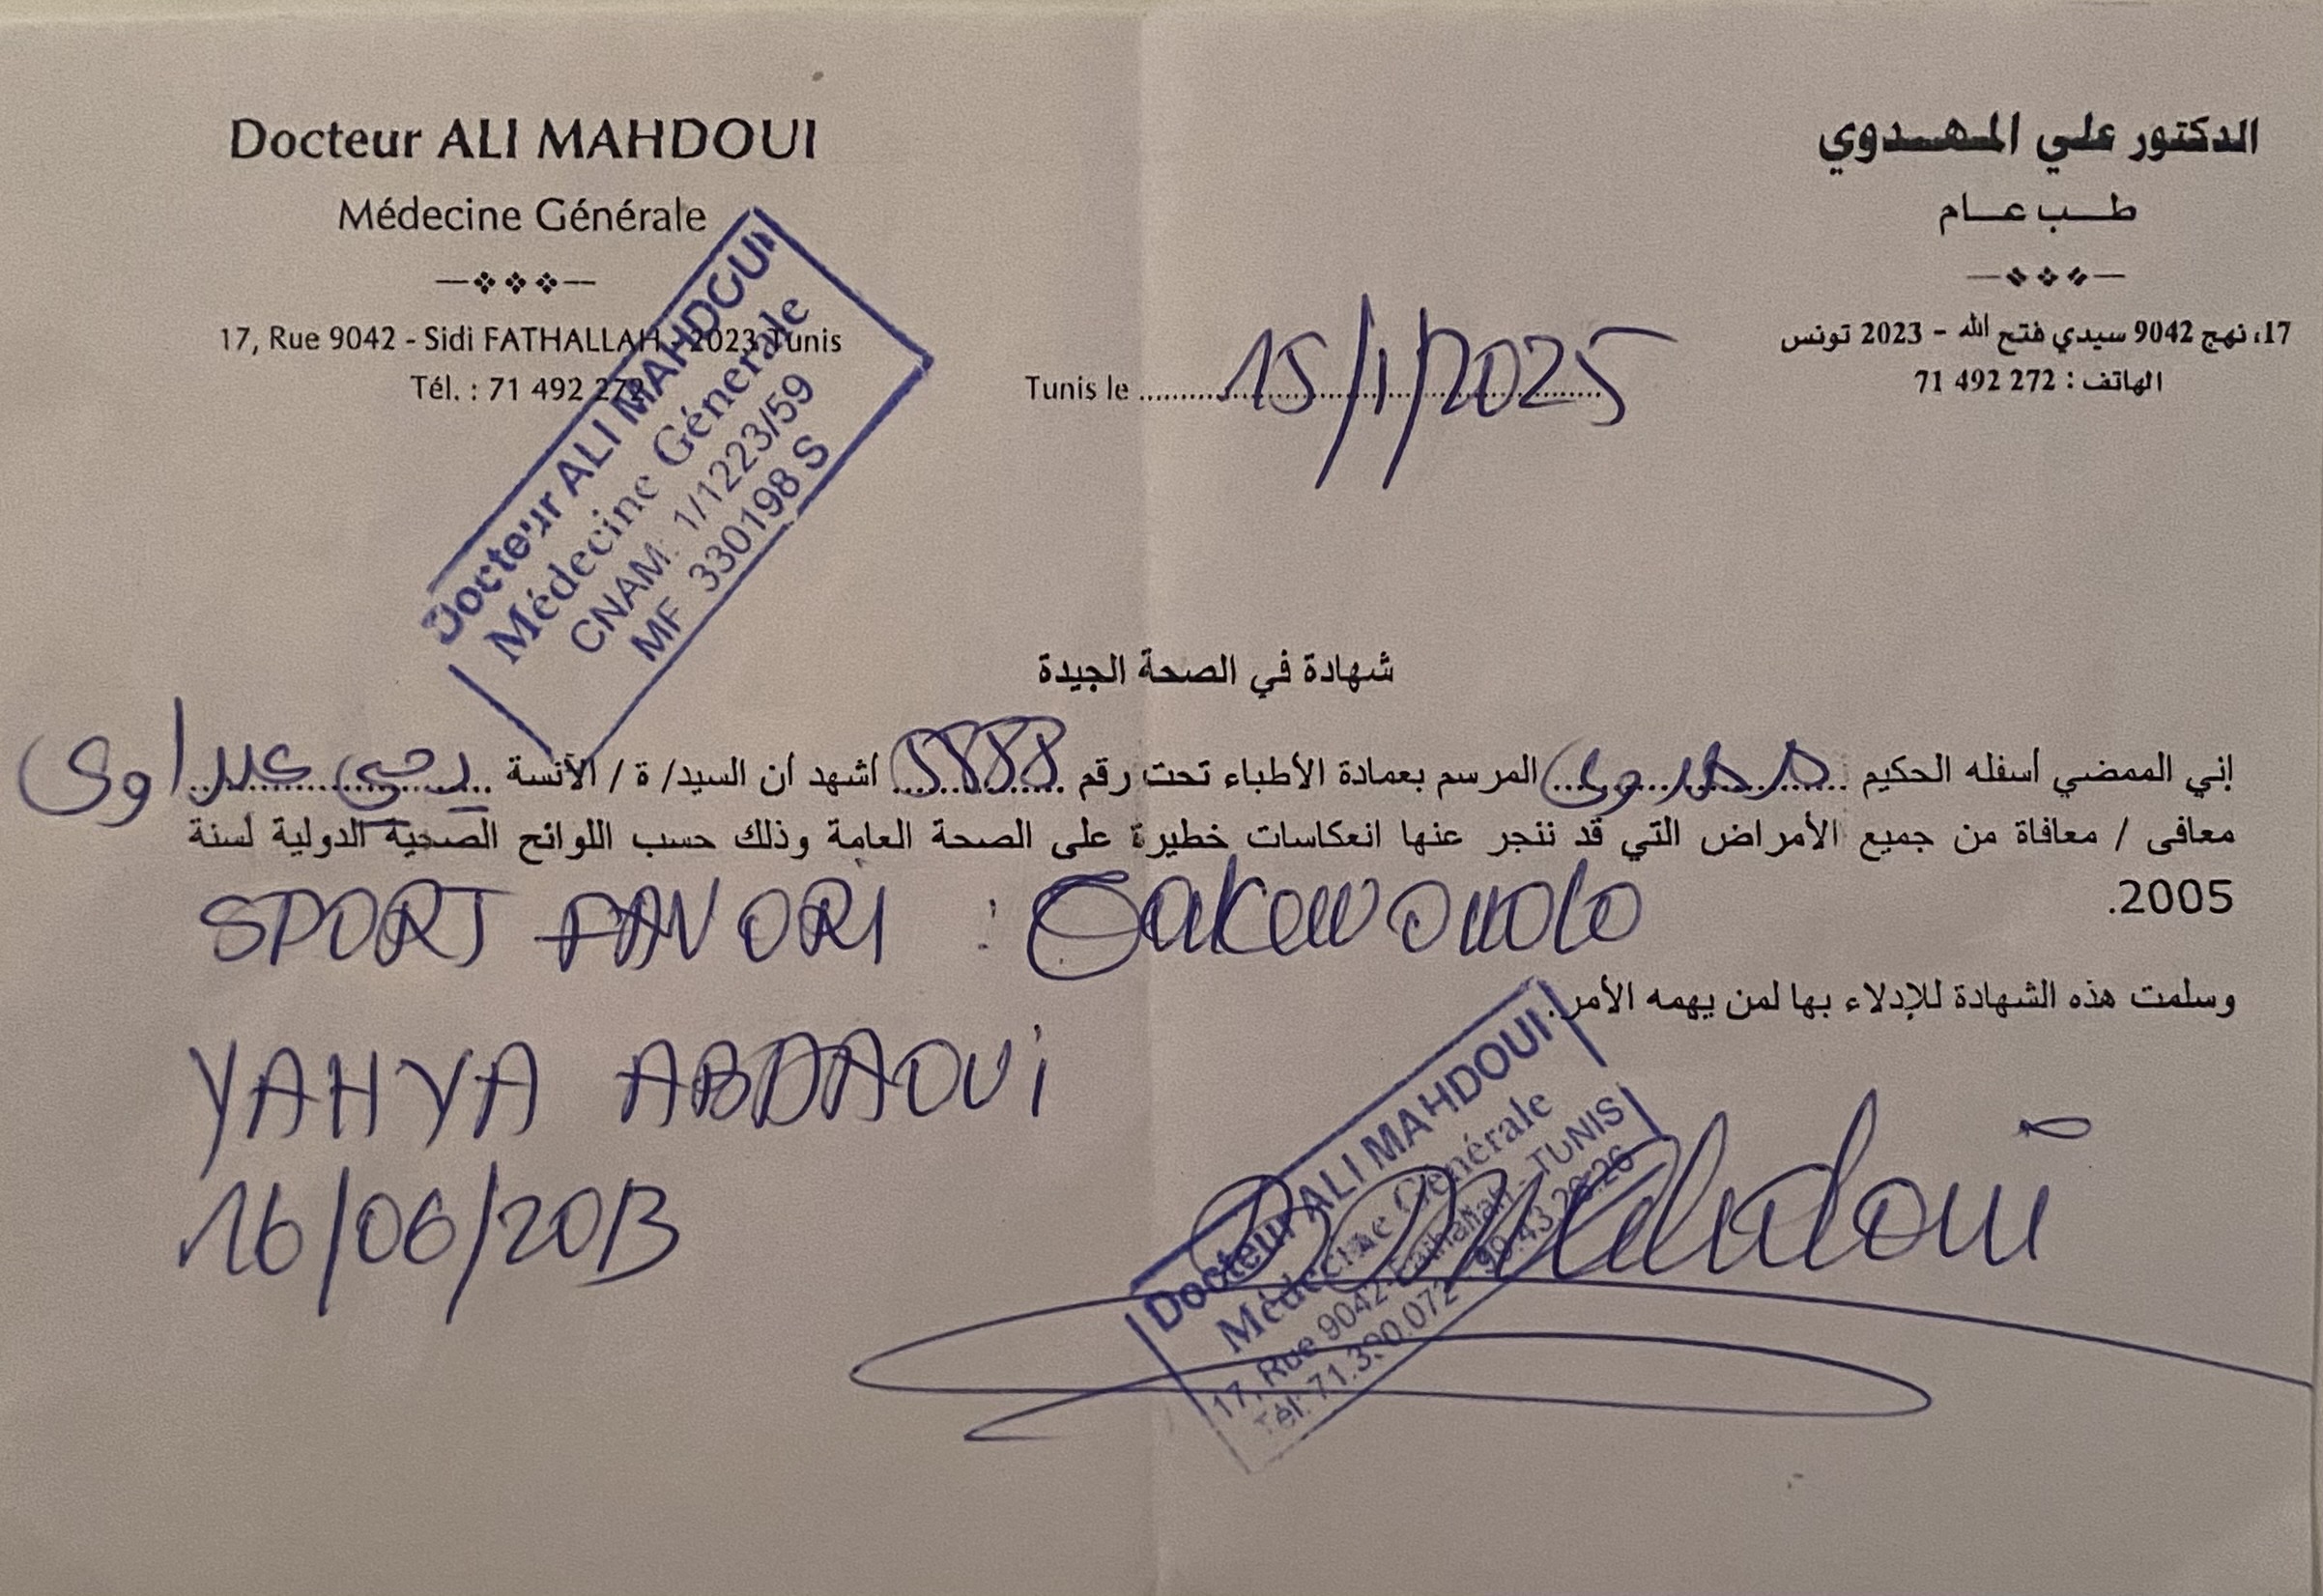 Docteur ALI MAHDOUI
Médecine Générale
17, Rue 9042 - Sidi FATHALLAH - 2023 Tunis
Tél. : 71 492 272
الدكتور علي المهدوي
طب عام
17، نهج 9042 سيدي فتح الله - 2023 تونس
الهاتف : 272 492 71
Tunis le 15/1/2025
Docteur ALI MAHDOUI
Médecine Génerale
CNAM: 1/1223/59
MF 330198 S
شهادة في الصحة الجيدة
إني الممضي أسفله الحكيم المرسم بعمادة الأطباء تحت رقم أشهد أن السيد/ ة / الأنسة يحيى عبداوي
معافى / معافاة من جميع الأمراض التي قد ننجر عنها انعكاسات خطيرة على الصحة العامة وذلك حسب اللوائح الصحية الدولية لسنة
2005.
SPORT FAVORI :
وسلمت هذه الشهادة للإدلاء بها لمن يهمه الأمر.
YAHYA ABDAOUi
16/06/2013
Docteur ALI MAHDOUI
Médecine Générale
17, Rue 9042-Fathallah - TUNIS
Tél: 71.390.072 - 98.43.26.26
Dr Mahdoui